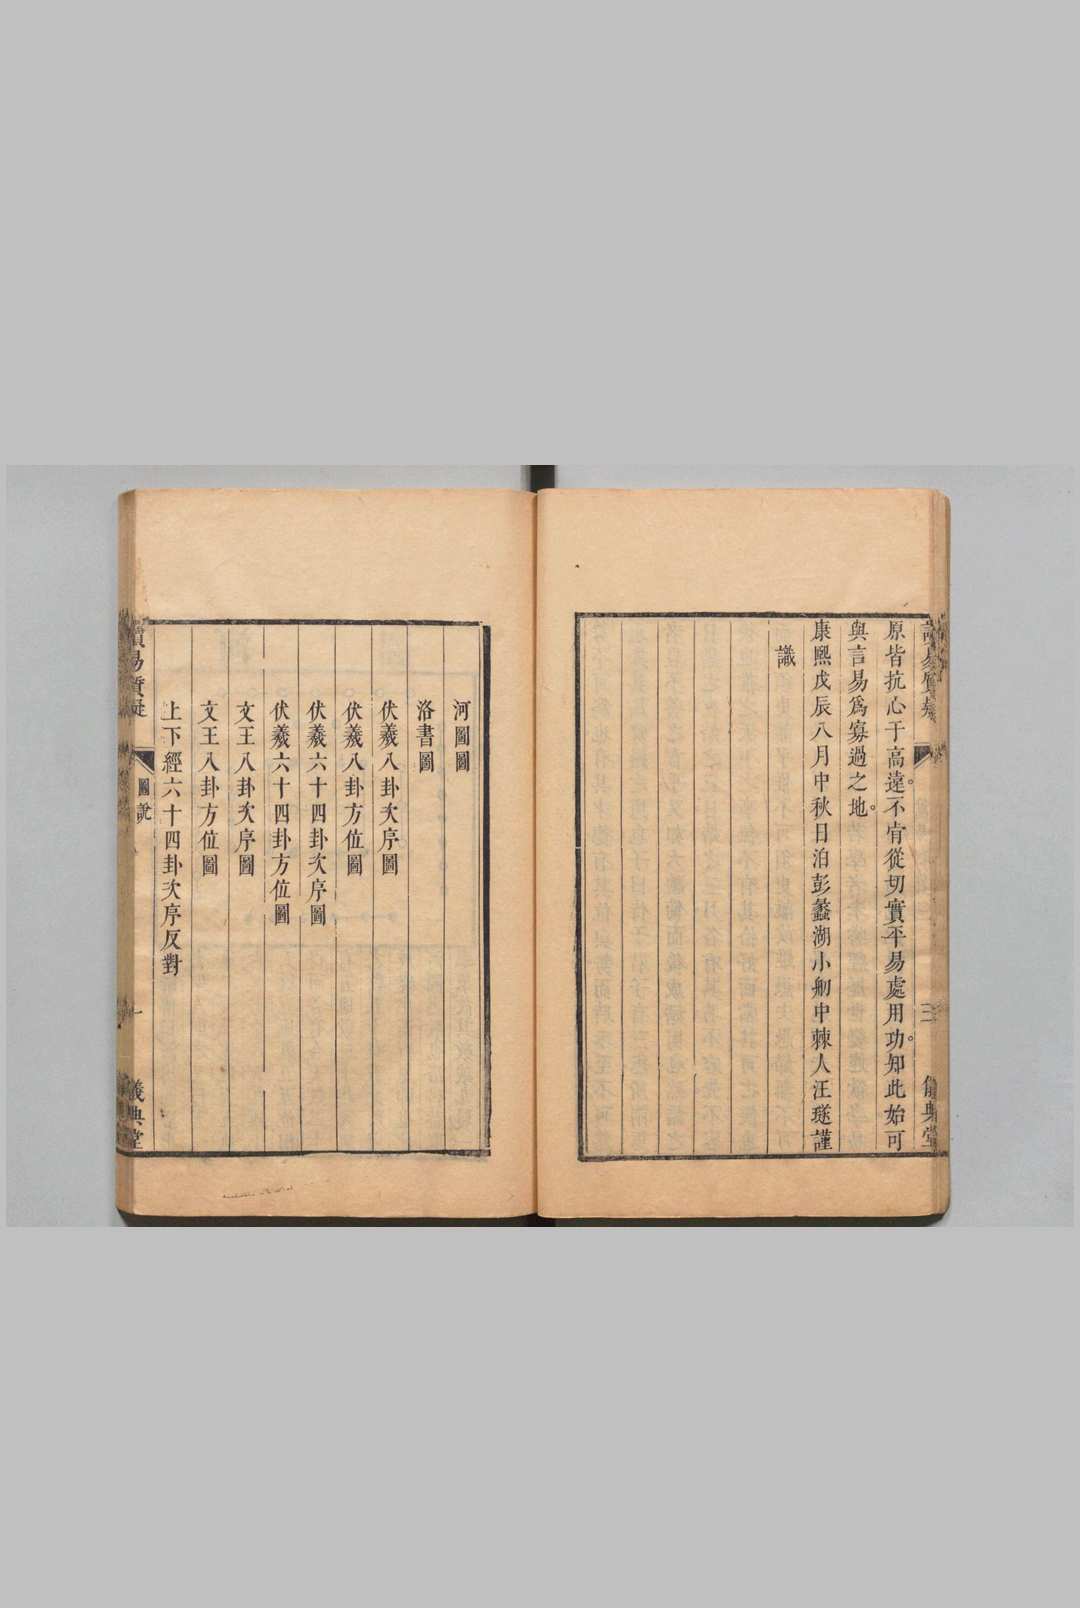 原皆抗心于高遠。不肯從切實平易處用功。知此始可
與言易爲寡過之地。
康熙戊辰八月中秋日泊彭蠡湖小舠中棘人汪璲謹
識
讀易質疑
三
儀典堂
河圖圖
洛書圖
伏羲八卦次序圖
伏羲八卦方位圖
伏羲六十四卦次序圖
伏羲六十四卦方位圖
文王八卦次序圖
文王八卦方位圖
上下經六十四卦次序反對
讀易質疑
圖說
一
儀典堂